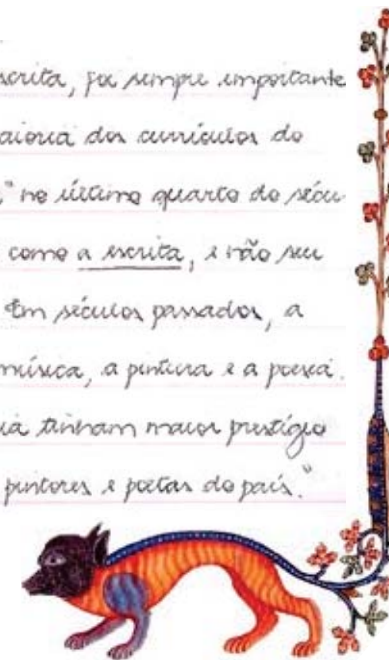 scrita, foi sempre importante
aioria dos currículos do
" no último quarto do sécu-
como a escrita, e não seu
Em séculos passados, a
música, a pintura e a poesia.
ia tinham maior prestígio
pintores e poetas do país."